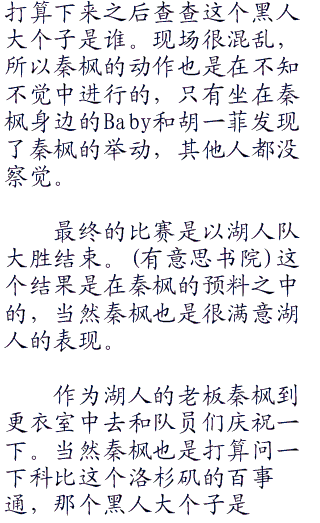 打算下来之后查查这个黑人
大个子是谁。现场很混乱，
所以秦枫的动作也是在不知
不觉中进行的，只有坐在秦
枫身边的Baby和胡一菲发现
了秦枫的举动，其他人都没
察觉。
最终的比赛是以湖人队
大胜结束。(有意思书院)这
个结果是在秦枫的预料之中
的，当然秦枫也是很满意湖
人的表现。
作为湖人的老板秦枫到
更衣室中去和队员们庆祝一
下。当然秦枫也是打算问一
下科比这个洛杉矶的百事
通，那个黑人大个子是